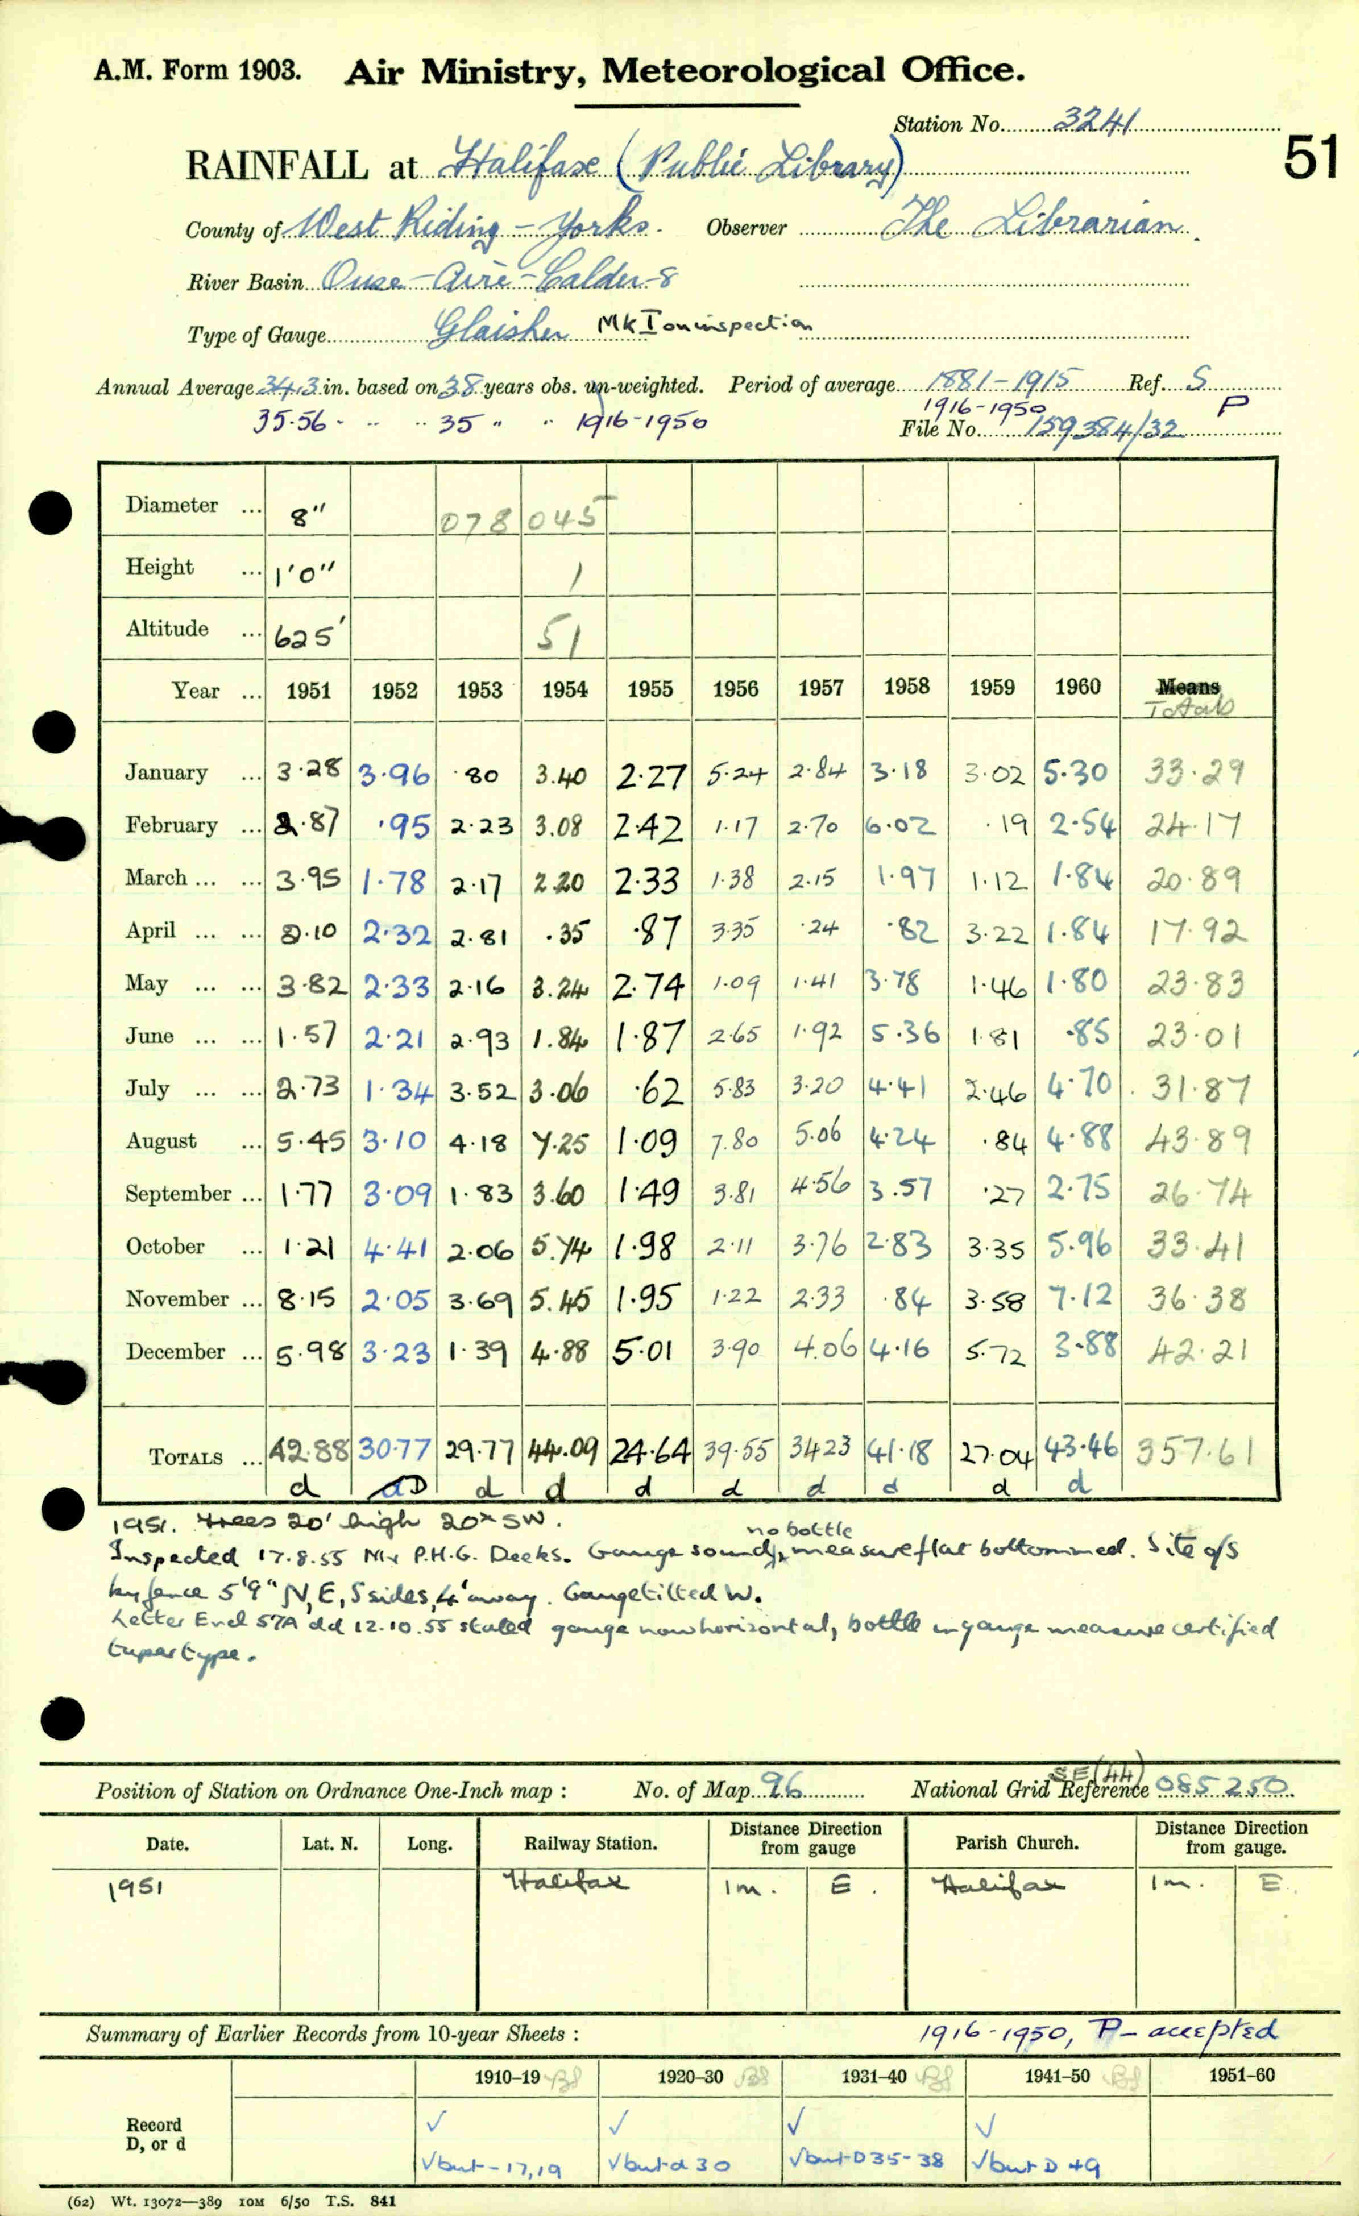 A.M. Form 1903. Air Ministry, Meteorological Office.
Station No. 3241
51
RAINFALL at Halifax (Public Library)
County of West Riding - Yorks. Observer The Librarian.
River Basin Ouse - Aire - Calder - 8
Type of Gauge Glaisher Mk I on inspection
Annual Average 34.3 in. based on 38 years obs. un-weighted. Period of average 1881-1915 Ref. S
35.56 " " 35 " " 1916-1950 1916-1950 P
File No. 159384/32
Diameter ... 8" 078 045
Height ... 1'0" 1
Altitude ... 625' 51
Year ... 1951 1952 1953 1954 1955 1956 1957 1958 1959 1960 Means
Totals
January ... 3.28 3.96 .80 3.40 2.27 5.24 2.84 3.18 3.02 5.30 33.29
February ... 2.87 .95 2.23 3.08 2.42 1.17 2.70 6.02 .19 2.54 24.17
March ... ... 3.95 1.78 2.17 2.20 2.33 1.38 2.15 1.97 1.12 1.84 20.89
April ... ... 2.10 2.32 2.81 .35 .87 3.35 .24 .82 3.22 1.84 17.92
May ... ... 3.82 2.33 2.16 3.24 2.74 1.09 1.41 3.78 1.46 1.80 23.83
June ... ... 1.57 2.21 2.93 1.84 1.87 2.65 1.92 5.36 1.81 .85 23.01
July ... ... 2.73 1.34 3.52 3.06 .62 5.83 3.20 4.41 2.46 4.70 31.87
August ... 5.45 3.10 4.18 7.25 1.09 7.80 5.06 4.24 .84 4.88 43.89
September ... 1.77 3.09 1.83 3.60 1.49 3.81 4.56 3.57 .27 2.75 26.74
October ... 1.21 4.41 2.06 5.74 1.98 2.11 3.76 2.83 3.35 5.96 33.41
November ... 8.15 2.05 3.69 5.45 1.95 1.22 2.33 .84 3.58 7.12 36.38
December ... 5.98 3.23 1.39 4.88 5.01 3.90 4.06 4.16 5.72 3.88 42.21
TOTALS ... 42.88 30.77 29.77 44.09 24.64 39.55 34.23 41.18 27.04 43.46 357.61
d D d d d d d d d d
1951. Trees 20' high 20x SW.
no bottle
Inspected 17.8.55 Mr P.H.G. Deeks. Gauge sound, measure flat bottommed. Site o/s
by fence 5'9" N, E, S sides, 4' away. Gauge tilted W.
Letter Encl 57A dd 12.10.55 stated gauge now horizontal, bottle in gauge measure certified
taper type.
Position of Station on Ordnance One-Inch map : No. of Map 96 National Grid Reference SE (44) 085250
Date. Lat. N. Long. Railway Station. Distance Direction from gauge Parish Church. Distance Direction from gauge.
1951 Halifax 1m. E. Halifax 1m. E.
Summary of Earlier Records from 10-year Sheets : 1916-1950, P - accepted
1910-19 1920-30 1931-40 1941-50 1951-60
Record √ √ √ √
D, or d √but-17,19 √but d 30 √but D 35-38 √but D 49
(62) Wt. 13072—389 10M 6/50 T.S. 841